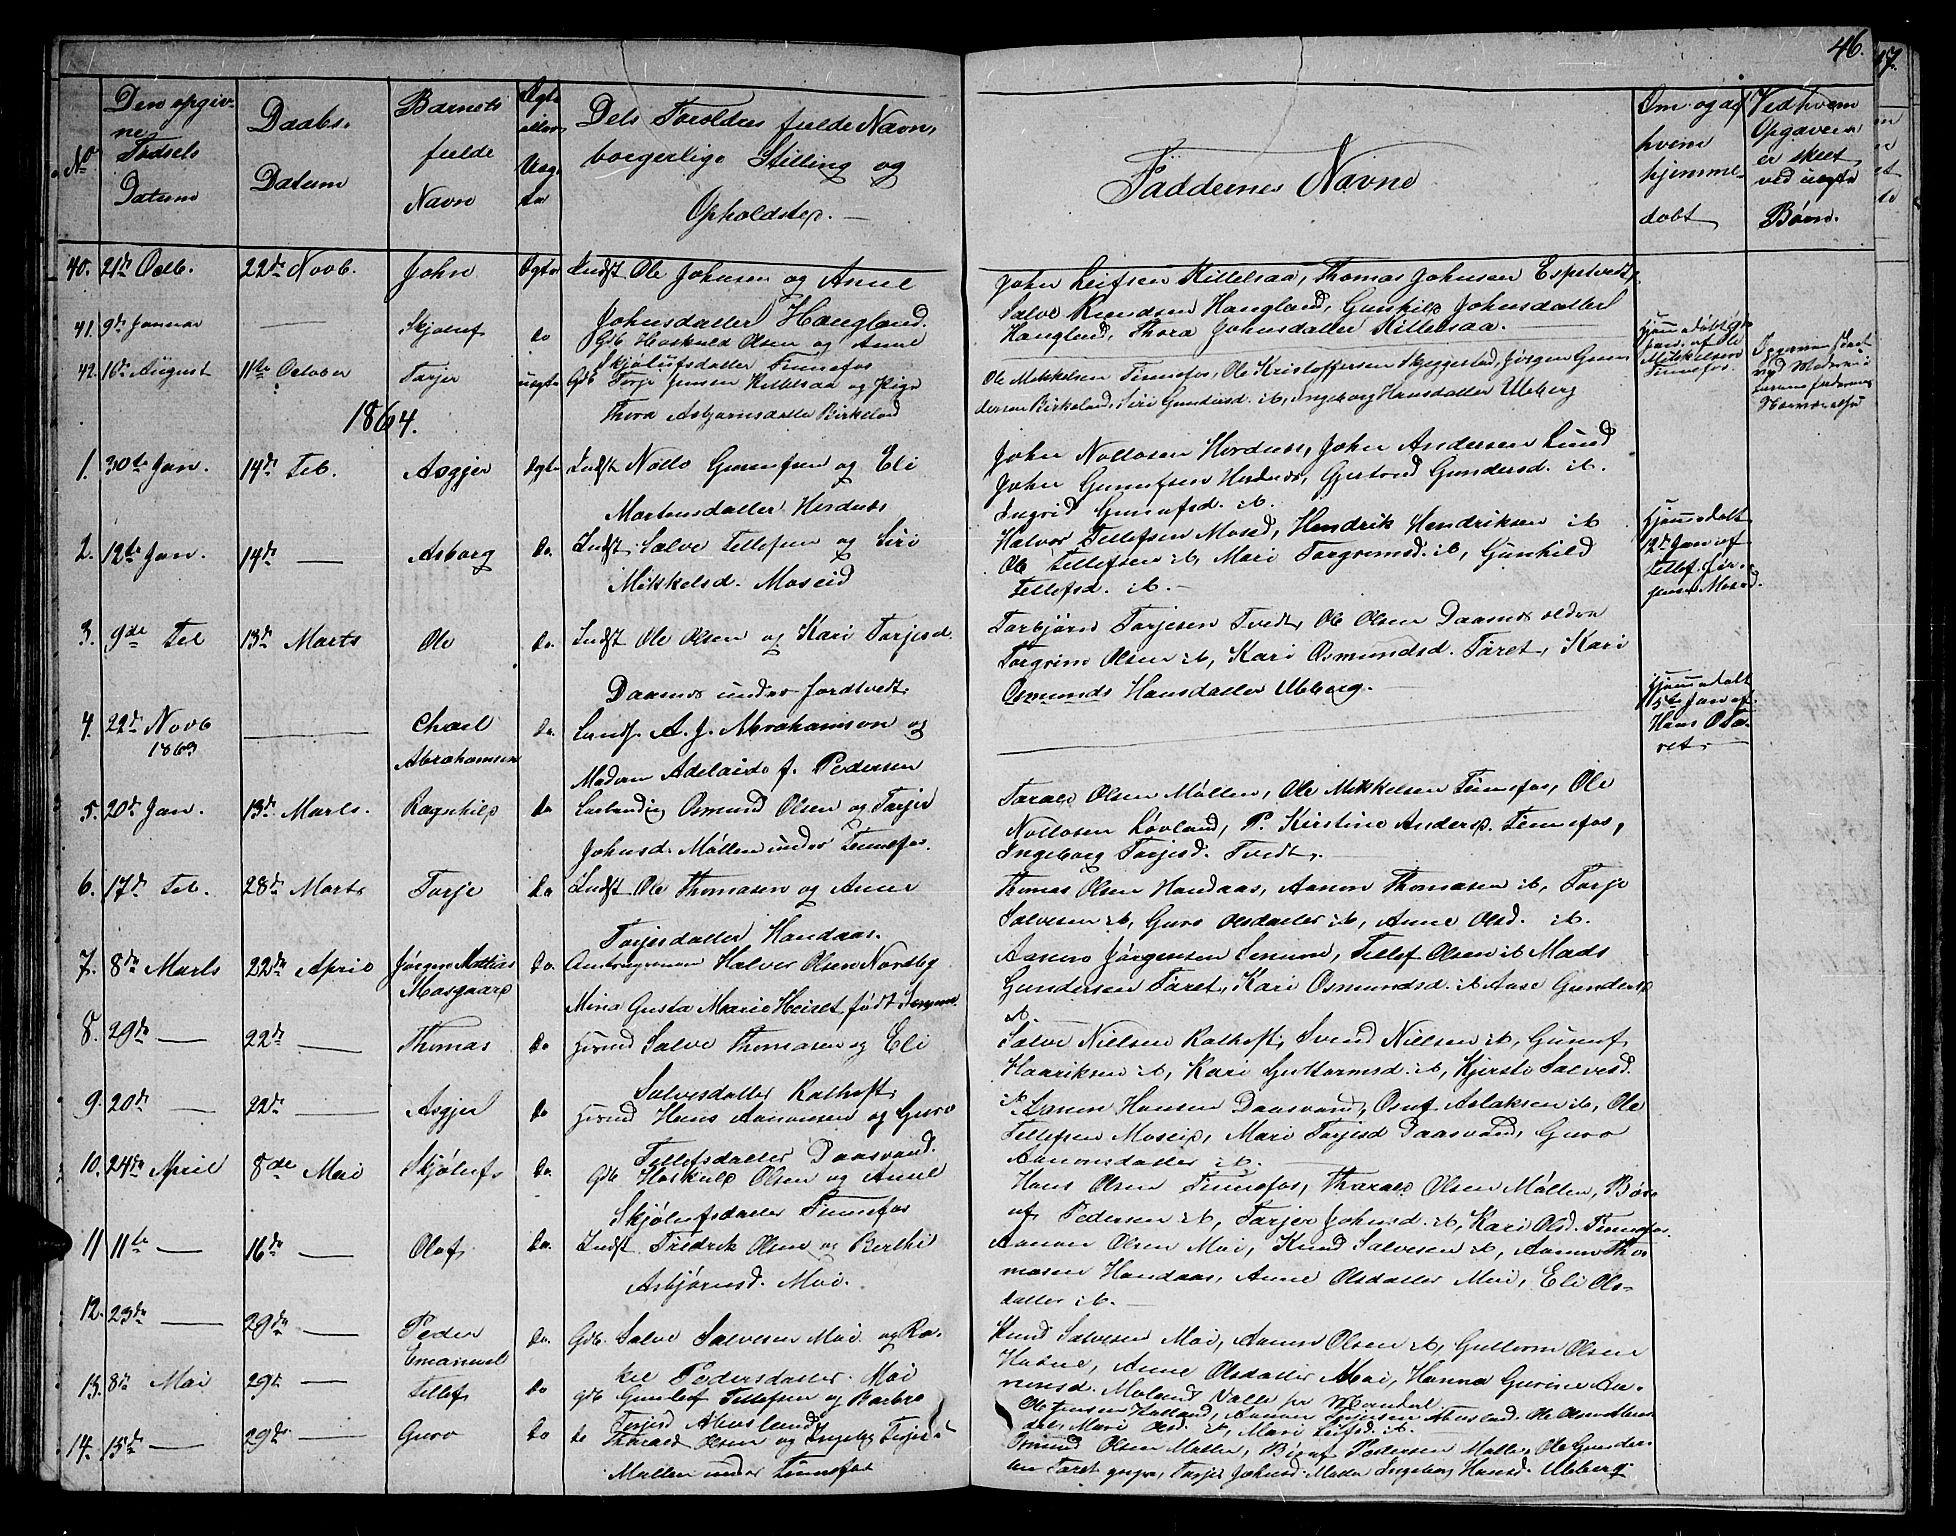 46.
No
Den opgiv-
ne
Fødsels
Datum
Daabs-
Datum
Barnets
fulde
Navn
Ægte
eller
Uæg-
te
Dets Forældres fulde Navn,
borgerlige Stilling og
Opholdsted.
Faddernes Navne
Om og af
hvem
hjemme-
døbt
Ved hvem
Opgaven
er skeet
ved uægte
Børn.
40. 21de Octb. 22de Novb. John Ægte Indst Ole Johnsen og Anne
Johnsdatter Haugland.
John Leifsen Killelsaa, Thomas Johnsen Espetvedt,
Salve Knudsen Haugland, Gunhild Johnsdatter
Haugland, Thora Johnsdatter Killelsaa.
41. 9de Januar — Skjøluf do Gdb Haskuld Olsen og Anne
Skjølufsdatter Finnefos
af Ole
Mikkelsen
Finnefos.
42. 10de August 11te October Torjer uægte Gdb Torje Jensen Killelsaa og Pige
Thora Asbjørnsdatter Birkeland
Ole Mikkelsen Finnefos, Ole Kristoffersen Skjeggestad, Jørgen Gun-
dersen Birkeland, Siri Gundersd. ib, Ingeborg Hansdatter Uleberg
1864.
1. 30te Jan. 14de Feb. Asgjer Ægte Indst Notto Gunufsen og Eli
Mortensdatter Hordnes
John Nottosen Hordnes, John Andersen Lund
John Gunufsen Hordnes, Gjertrud Gundersd. ib.
Ingrid Gunufsd. ib.
2. 12te Jan. 14de — Asborg do. Indst. Salve Tellefsen og Siri
Mikkelsd. Moseid
Halvor Tellefsen Mosed, Hendrik Hendriksen ib
Ole Tellefsen ib, Mari Torgremsd. ib, Gunhild
Tellefsd. ib. —
Hjemmedøbt
12de Jan af
Tellef Jør-
gensen Mosed.
3. 9de Feb 13de Marts Ole do. Indst Ole Olsen og Kari Torjesd.
Daasnes under Jordtvedt.
Torbjørn Torjesen Tvedt, Ole Olsen Daasnes ældre
Torgrim Olsen ib, Kari Osmundsd. Taret, Kari
Osmunds Hansdatter Uleberg.
4. 22de Novb
1863
— Charl
Abrahamsen do. Landh. A. J. Abrahamson og
Madam Adelaide f. Pedersen
Hjemmedøbt
5te Jan af
Hans O. Ta-
ret.
5. 20de Jan. 13de Marts. Ragnhild do Osmund Olsen og Torjer
Johnsd. Møllen under Finnefos.
Torald Olsen Møllen, Ole Mikkelsen Finnefos, Ole
Nottosen Løvland, P. Kirstine Andersd. Finnefos,
Ingeborg Torjesd. Tvedt.
6. 17de Feb. 28de Marts Torje do Indst Ole Thomasen og Anne
Torjesdatter Handaas.
Thomas Olsen Handaas, Aanon Thomasen ib, Torje
Salvesen ib, Guro Olsdatter ib, Anne Olsd. ib.
7. 8de Marts 22de April Jørgen Mathias
Mosgaard do. Halvor Olsen Nordby
Mina Gusta Marie Heiset født
Aanen Jørgensen Senum, Tellef Olsen ib Mads
Gundersen Taret, Kari Osmundsd. ib Aase Gundersd
ib.
8. 29de — 22de — Thomas do Salve Thomasen og Eli
Salvesdatter Ralhoft
Salve Nielsen Ralhoft, Svend Nielsen ib, Gunuf
Haariksen ib, Kari Guttormsd. ib, Kjersti Salvesd.
ib.
9. 20de — 22de — Asgjer do Hans Aanonsen og Guro
Tellefsdatter Daasvand.
Aanon Hansen Daasvand, Osuf Aslaksen ib, Ole
Tellefsen Moseid, Mari Torjesd Daasvand, Guro
Aanonsdatter ib.
10. 24de April 8de Mai Skjøluf do Gdb Haskuld Olsen og Anne
Skjølufsdatter Finnefos
Hans Olsen Finnefos, Tharald Olsen Møllen, Bør-
uf Pedersen ib, Torjer Johnsd. ib, Kari Olsd. Finnefos.
11 11te — 16de — Olaf do. Indst Fredrik Olsen og Berthe
Asbjørnsd. Moi.
Aanon Olsen Moi, Knud Salvesen ib, Aanon Tho-
masen Handaas, Anne Olsdatter Moi, Eli Ols-
datter ib. —
12. 23de — 29de — Peder
Emanuel do. Gdb. Salve Salvesen Moi og Ra-
kel Pedersdatter Moi
Knud Salvesen Moi, Aanon Olsen ib, Guttorm Olsen
Anne Olsdatter Moi, Hanna Gurine Aa-
nensd. Moland Valle pr Mandal
13. 8de Mai 29de — Tellef do Gdb Gunluf Tellefsen og Barbro
Torjesd Ahusland
Ole Jensen Aanon Torjesen Ahusland, Ole Olsen
Mari Olsd. ib, Mari Leifsd. ib.
14. 15de — 29de — Guro do do Tharald Olsen og Ingebg Torjesd
Møllen under Finnefos
Osmund Olsen Møllen, Børuf Pedersen Møllen, Ole Gunder-
sen Taret Torjer Johnsd. Møllen Ingeborg Hansd. Uleberg